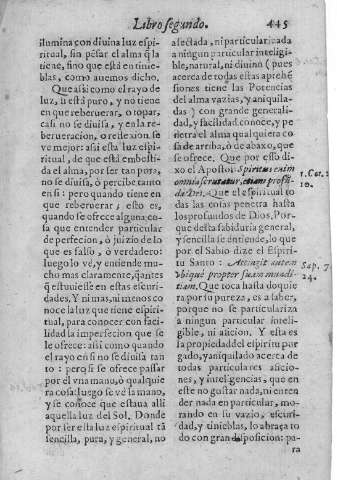 Libro segundo.
445
ilumina con diuina luz espi-
ritual, sin pésar el alma q̃ la
tiene, sino que está en tinie-
blas, como auemos dicho.
Que asi como el rayo de
luz, si está puro, y no tiene
en que reberuerar, o topar,
casi no se diuisa, y en la re-
berueracion, o reflexion se
ve mejor: asi esta luz espi-
ritual, de que está embesti-
da el alma, por ser tan pura,
no se diuisa, ò percibe tanto
en si: pero quando tiene en
que reberuerar; esto es,
quando se ofrece alguna co-
sa que entender particular
de perfecion, ò juizio de lo
que es falso, ò verdadero:
luego lo vé, y entiende mu-
cho mas claramente, q̃antes
q̃ estuuiesse en estas escuri-
dades. Y ni mas, ni menos co
noce la luz que tiene espiri-
tual, para conocer con faci-
lidad la imperfecion que se
le ofrece: asi como quando
el rayo en si no se diuisa tan
to: pero si se ofrece passar
por el vna mano, ò qualquie
ra cosa: luego se vé la mano,
y se conoce que estaua alli
aquella luz del Sol. Donde
por ser esta luz espiritual tã
sencilla, pura, y general, no
afectada, ni particularizada
a ningun particular inteligi
ble, natural, ni diuino (pues
acerca de todas estas aprehẽ
siones tiene las Potencias
del alma vazias, y aniquila-
das) con grande generali-
dad, y facilidad conoce, y pe
netra el alma qualquiera co
sa de arriba, ò de abaxo, que
se ofrece. Que por esso di-
xo el Apostol: Spiritus enim
omnia scrutatur, etiam profũ-
da Dei. Que el espiritu to
das las cosas penetra hasta
los profundos de Dios. Por-
que desta sabiduria general,
y sencilla se entiende, lo que
por el Sabio dize el Espiri-
tu Santo: Attingit autem
vbique propter suam mundi-
tiam. Que toca hasta doquie
ra por su pureza, es a saber,
porque no se particulariza
a ningun particular inteli-
gible, ni aficion. Y esta es
la propiedad del espiritu pur
gado, y aniquilado acerca de
todas particulares aficio-
nes, y inteligencias, que en
este no gustar nada, ni enten
der nada en particular, mo-
rando en su vazio, escuri-
dad, y tinieblas, lo abraça to
do con gran disposicion: pa-
ra
1. Cor. 2
10.
Sap. 7
24.